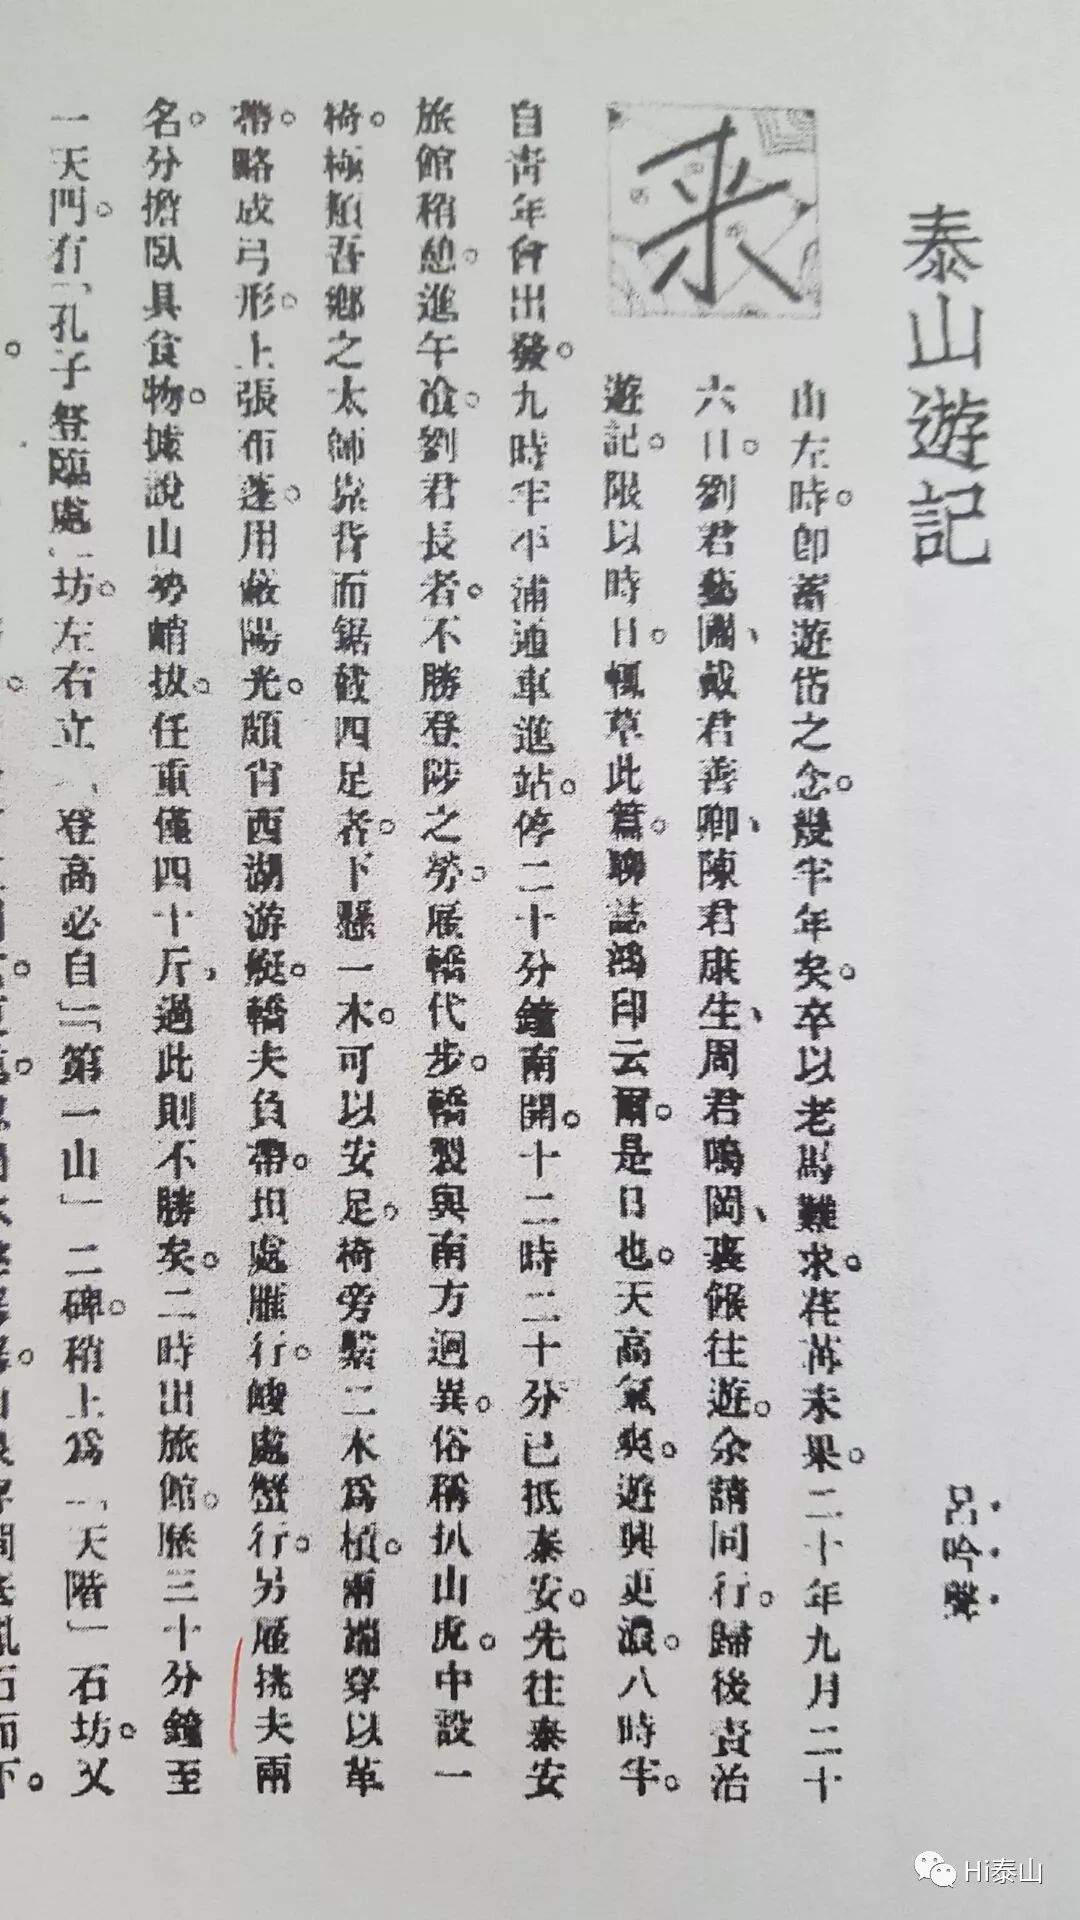 泰山遊記
呂吟聲
來
山左時。卽蓄遊岱之念。幾半年矣。卒以老馬難求。荏苒未果。二十年九月二十
六日。劉君藝圃、戴君善卿、陳君康生、周君鳴岡、裹餱往遊。余請同行。歸後責治
遊記。限以時日。輒草此篇。聊誌鴻印云爾。是日也。天高氣爽。遊興更濃。八時半。
自靑年會出發。九時半平浦通車進站。停二十分鐘南開。十二時二十分已抵泰安。先往泰安
旅館稍憩。進午飡。劉君長者。不勝登陟之勞。雇轎代步。轎製與南方迥異。俗稱扒山虎。中設一
椅。極類吾鄕之太師靠背而鋸截四足者。下懸一木。可以安足。椅旁繫二木爲槓。兩端穿以革
帶。略成弓形。上張布蓬。用蔽陽光。頗肖西湖游艇。轎夫負帶。坦處雁行。峻處蟹行。另雇挑夫兩
名。分擔臥具食物。據說山勢峭拔。任重僅四十斤，過此則不勝矣。二時出旅館。歷三十分鐘至
一天門。有「孔子登臨處」坊。左右立「登高必自」「第一山」二碑。稍上爲「天階」石坊。又
石而下。
Hi泰山